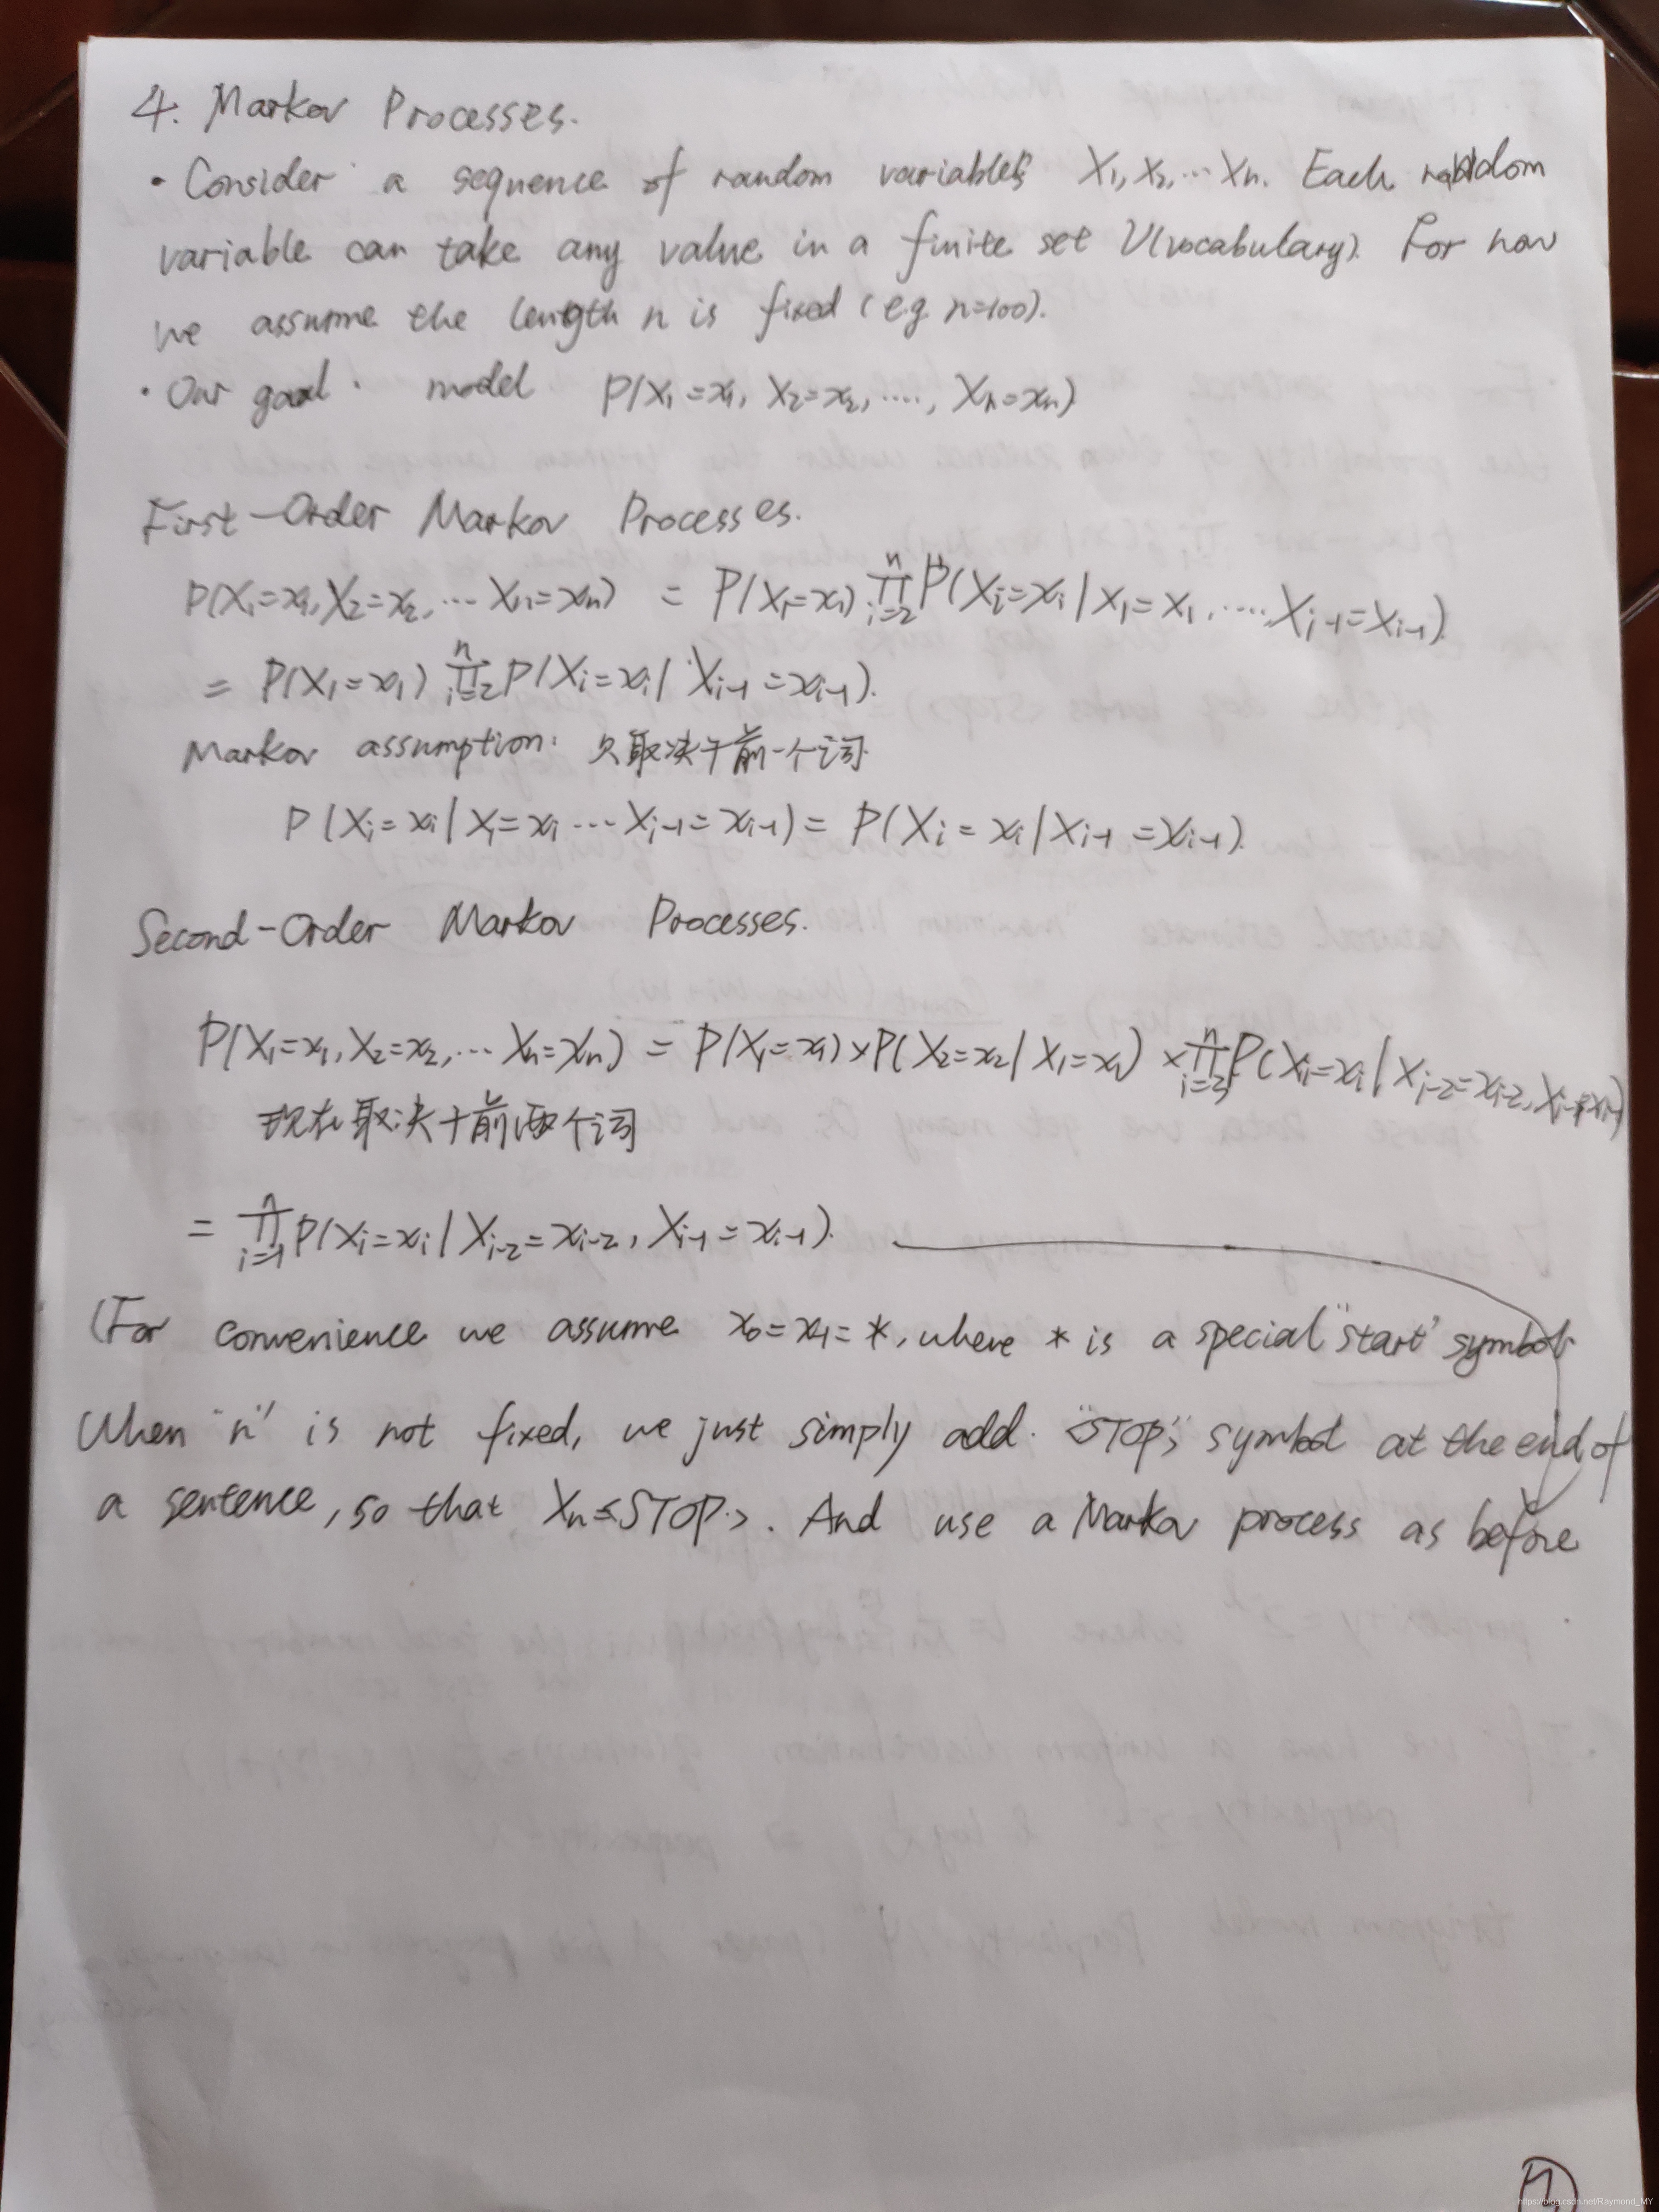 4. Markov Processes.
· Consider a sequence of random variables X₁, X₂, ... Xn. Each random
variable can take any value in a finite set V(vocabulary). For now
we assume the length n is fixed (e.g n=100).
· Our goal · model P(X₁=x₁, X₂=x₂, ...., Xn=xn)
First-Order Markov Processes.
P(X₁=x₁, X₂=x₂, ... Xn=xn) = P(X₁=x₁) ∏ⁿᵢ₌₂ P(Xi=xi | X₁=x₁, .... Xi-1=xi-1)
= P(X₁=x₁) ∏ⁿᵢ₌₂ P(Xi=xi | Xi-1=xi-1).
Markov assumption: 只取决于前一个词
P(Xi=xi | X₁=x₁ ... Xi-1=xi-1) = P(Xi=xi | Xi-1=xi-1).
Second-Order Markov Processes.
P(X₁=x₁, X₂=x₂, ... Xn=xn) = P(X₁=x₁) × P(X₂=x₂ | X₁=x₁) × ∏ⁿᵢ₌₃ P(Xi=xi | Xi-2=xi-2, Xi-1=xi-1)
现在取决于前两个词
= ∏ⁿᵢ₌₁ P(Xi=xi | Xi-2=xi-2, Xi-1=xi-1).
(For convenience we assume x₀=x₋₁=*, where * is a special "start" symbol
When "n" is not fixed, we just simply add "STOP" symbol at the end of
a sentence, so that Xn=<STOP>. And use a Markov process as before
https://blog.csdn.net/Raymond_MY